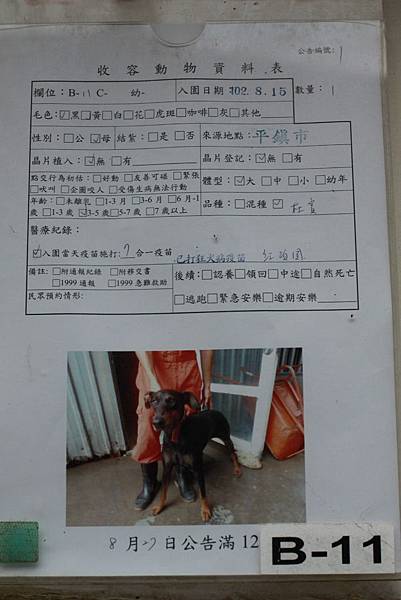 公告編號：1
收容動物資料表
欄位：B-11 C- 幼- 入園日期 102.8.15 數量：1
毛色：☑黑□黃□白□花□虎斑□咖啡□灰□其他
性別：□公☑母 結紮：□是 □否 來源地點：平鎮市
晶片植入：☑無□有 晶片登記：☑無□有
點交行為初估：□好動 □友善可碰 □緊張
□吠叫 □企圖咬人 □受傷生病無法行動
體型：☑大□中□小□幼年
年齡：□未離乳 □1-3月 □3-6月 □6月-1
歲□1-3歲☑3-5歲□5-7歲□7歲以上
品種：□混種☑杜賓
醫療紀錄：
☑入園當天疫苗施打：7合一疫苗 已打狂犬病疫苗
備註：□附通報紀錄 □附移交書
□1999通報 □1999急難救助
後續：□認養□領回□中途□自然死亡
民眾預約情形：
□逃跑□緊急安樂□逾期安樂
8月27日公告滿12
B-11